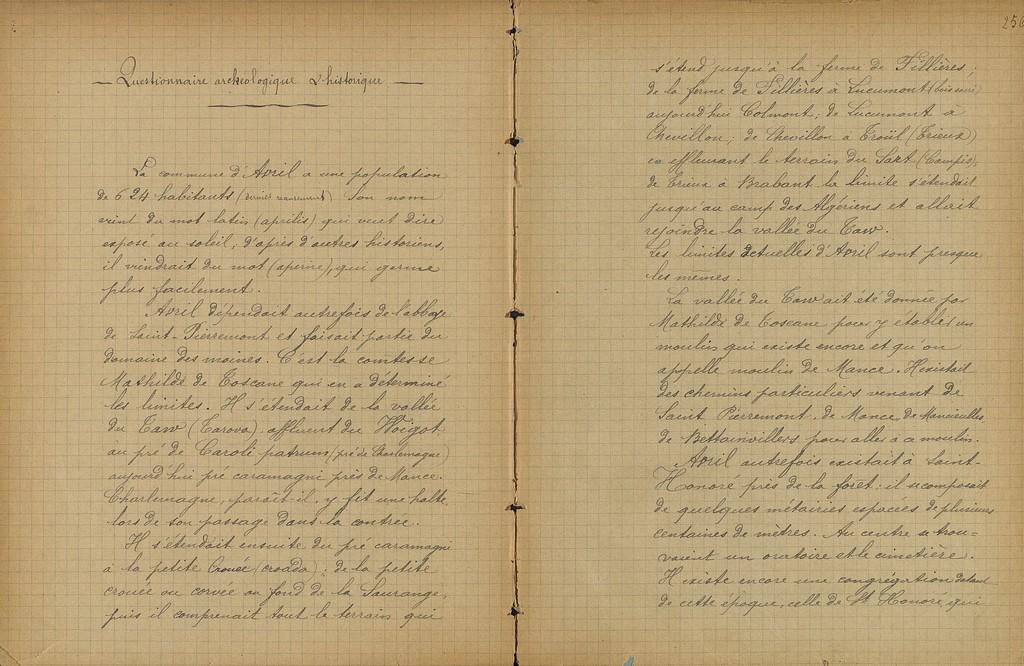 Questionnaire archeologique & historique
La commune d'Avril a une population
de 624 habitants (dernier recensement). Son nom
vient du mot latin (aprilis) qui veut dire
exposé au soleil, d'après d'autres historiens,
il viendrait du mot (aperire), qui germe
plus facilement.
Avril dépendait autrefois de l'abbaye
de Saint-Pierremont et faisait partie du
domaine des moines. C'est la comtesse
Mathilde de Toscane qui en a déterminé
les limites. Il s'étendait de la vallée
du Taw (Tarova) affluent du Woigot
au pré de Caroli patrum (pré de Charlemagne)
aujourd'hui pré caramagni près de Mance.
Charlemagne, paraît-il, y fit une halte
lors de son passage dans la contrée.
Il s'étendait ensuite du pré caramagni
à la petite Crouée (croada); de la petite
crouée ou corvée au fond de la Saurange,
puis il comprenait tout le terrain qui
256
s'étend jusqu'à la ferme de Fillières;
de la ferme de Fillières à Lucumont
aujourd'hui Colmont; de Lucumont à
Chevillon; de Chevillon à Troül (Trieux)
en effleurant le terrain du Sart (Campis),
de Trieux à Brabant la limite s'étendait
jusqu'au camp des Algériens et allait
rejoindre la vallée du Taw.
Les limites actuelles d'Avril sont presque
les mêmes.
La vallée du Taw ait été donnée par
Mathilde de Toscane pour y établir un
moulin qui existe encore et qu'on
appelle moulin de Mance. Il existait
des chemins particuliers venant de
Saint Pierremont, de Mance, de Mancieulles,
de Bettainvillers pour aller à ce moulin.
Avril autrefois existait à Saint-
Honoré près de la forêt: il se composait
de quelques métairies espacées de plusieurs
centaines de mètres. Au centre se trou-
vaient un oratoire et le cimetière.
Il existe encore une congrégation datant
de cette époque, celle de St Honoré, qui